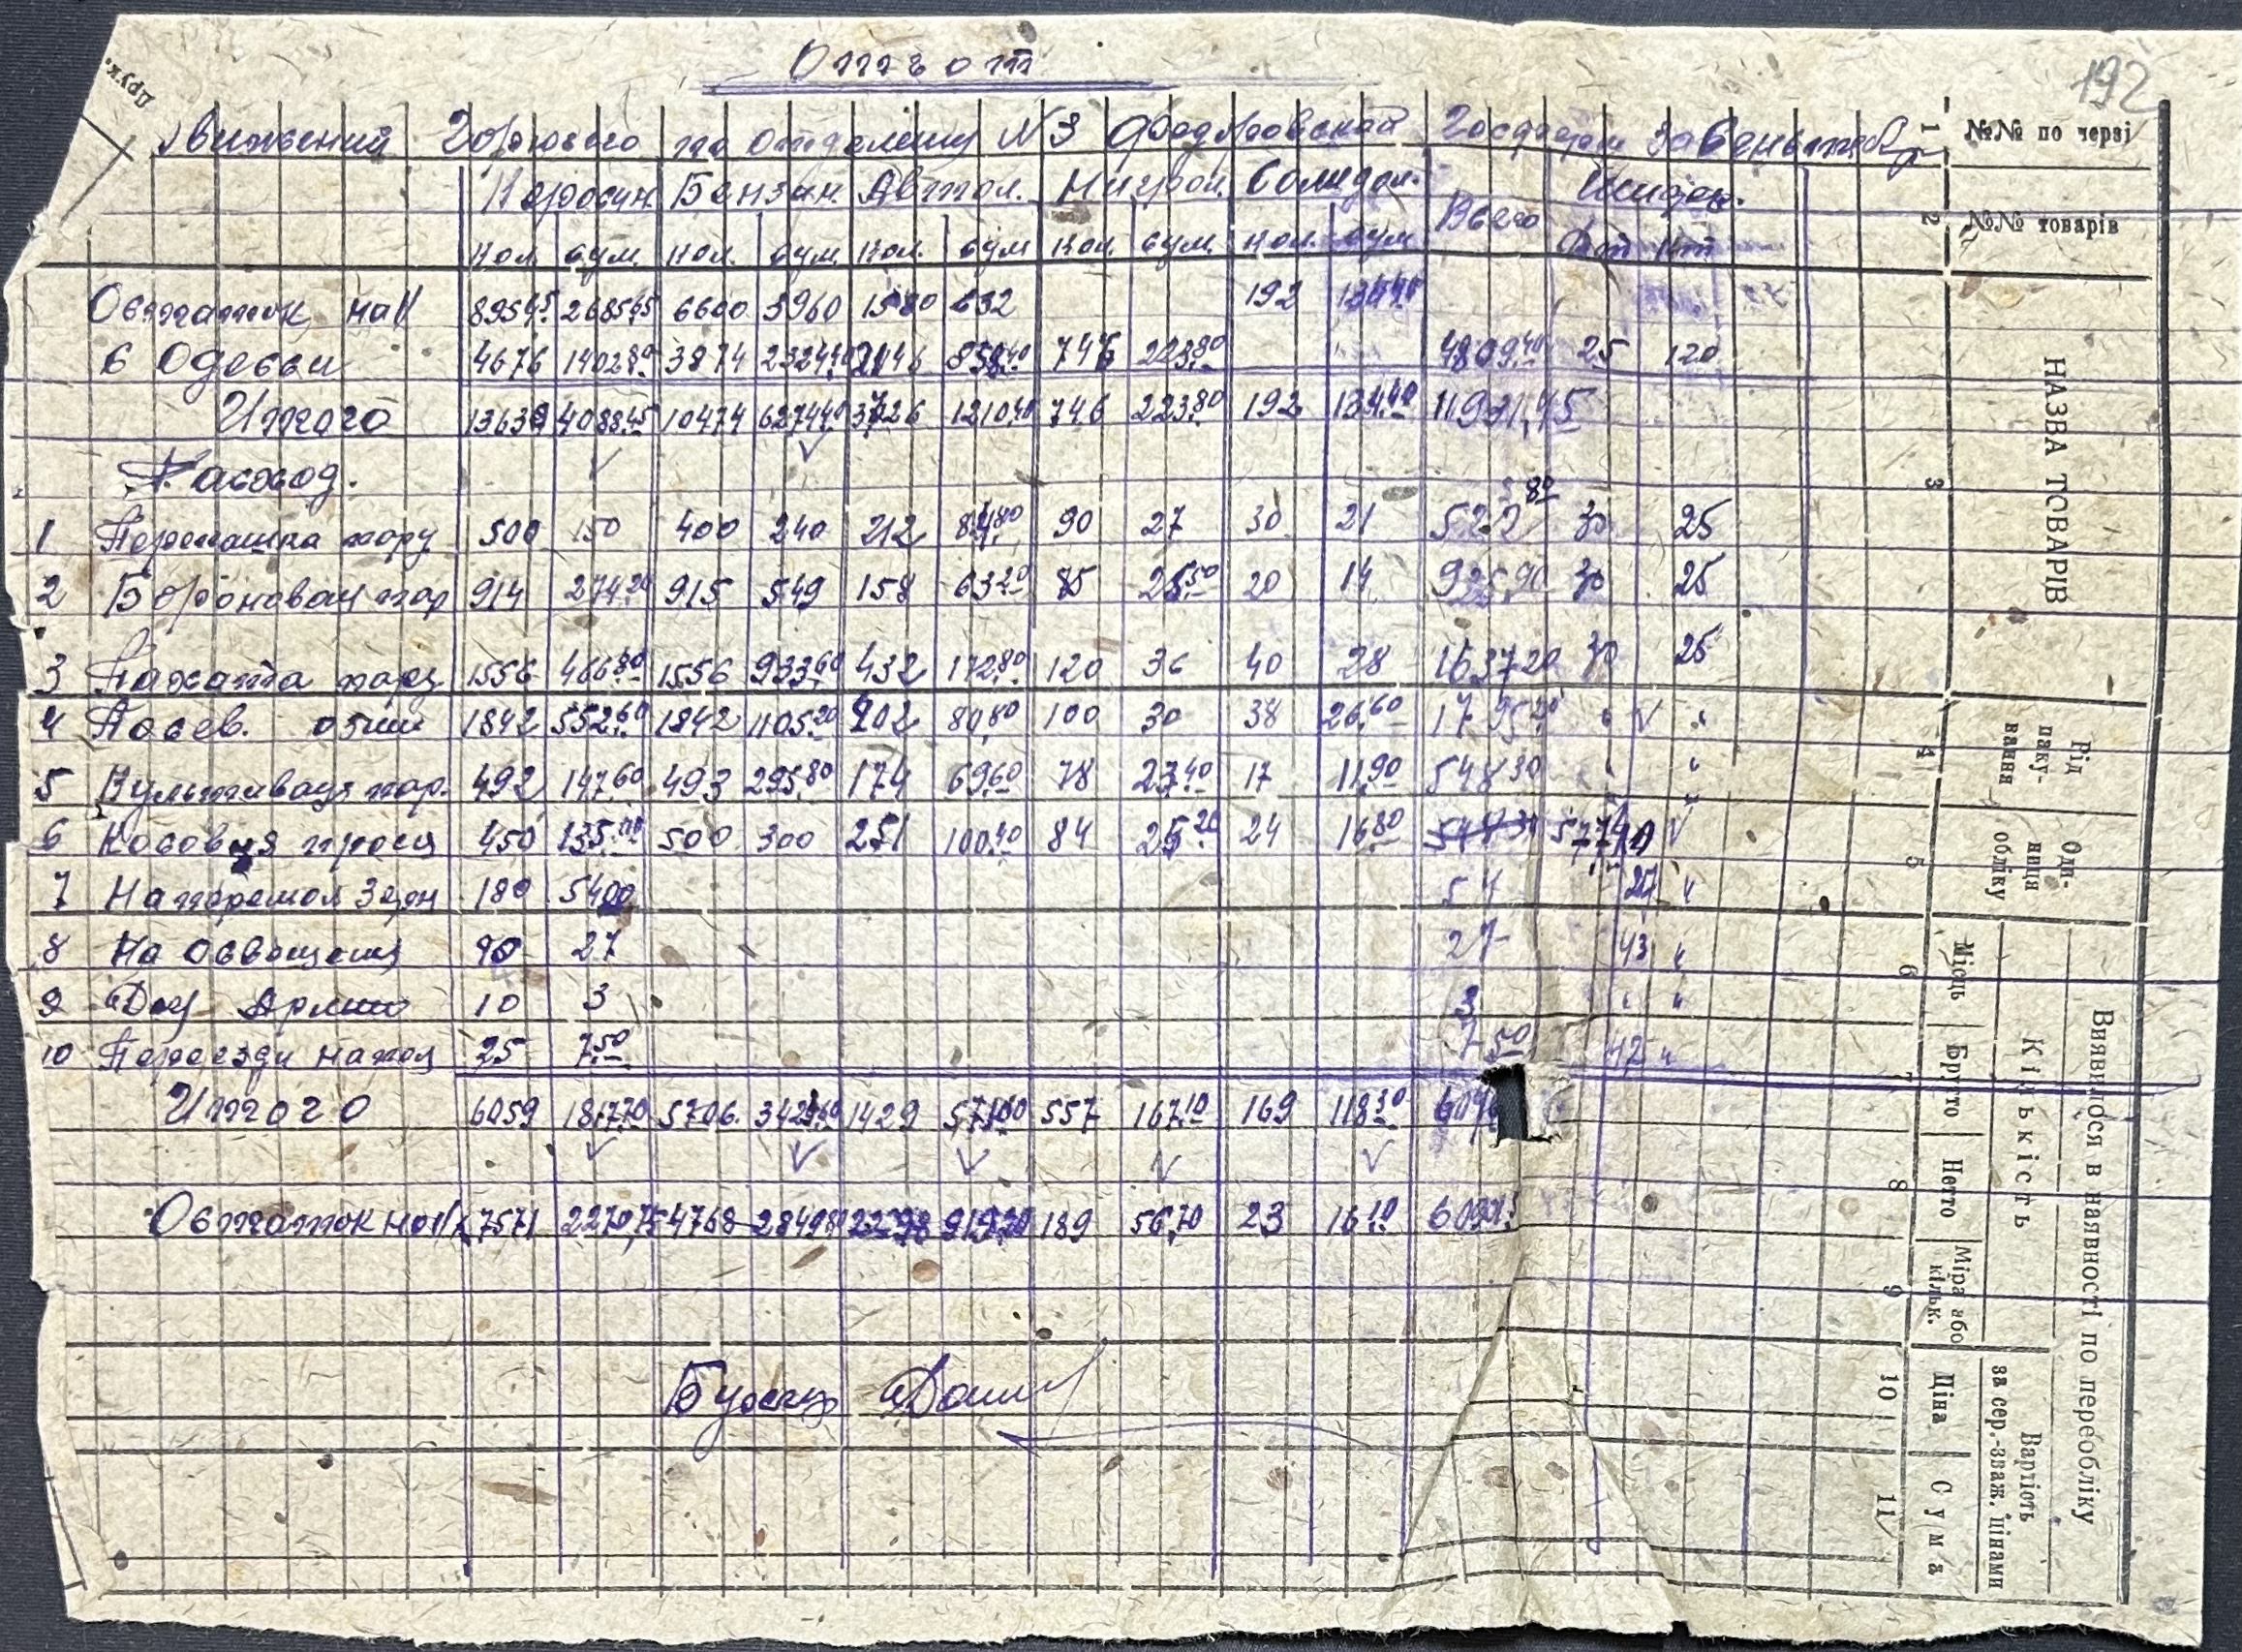 192
Отчот
движений Горючего по отделению №3 Фёдоровской Госферм за Сентябрь
Керосин. Бензин. Автол. Нигрол. Солидол. Всего Шифр.
Кол. сум. Кол. сум. Кол. сум Кол. сум. Кол. сум Дт Кт
Остаток на 1/ 8959,45 2685,45 6600 3960 1580 632 192 134,40
с Одесси 4676 1402,80 3874 2324,40 2146 858,40 746 223,80 4809,40 25 120
Итого 13639 4088,45 10474 6274,40 3726 1210,40 746 223,80 192 134,40 11931,45
Расход.
1 Перепашка пару 500 150 400 240 212 84,80 90 27 30 21 522,80 30 25
2 Боронован пар 914 274,20 915 549 158 63,20 85 25,50 20 14 925,90 30 25
3 Пахата пару 1556 466,80 1556 933,60 432 172,80 120 36 40 28 1637,20 30 25
4 Посев. озим 1842 552,60 1842 1105,20 202 80,80 100 30 38 26,60 1795,20 " "
5 Культивация пар. 492 147,60 493 295,80 174 69,60 78 23,40 17 11,90 548,30 " "
6 Косовця прося 450 135,00 500 300 251 100,40 84 25,20 24 16,80 548,30 577,40
7 На перемол зерн 180 54,00 54 27 "
8 На Освещения 90 27 27 43 "
9 Для Армии 10 3 3 " "
10 Переезди на пол 25 7,50 7,50 42 "
Итого 6059 1817,70 5706 3423,60 1429 571,60 557 167,10 169 118,30
Остаток на 1/ 7571 2270,75 4768 2849,80 2298 919,20 189 56,70 23 16,10
Друк.
№№ по черзі
№№ товарів
НАЗВА ТОВАРІВ
Рід паку-вання
Оди-ниця обліку
Виявилося в наявності по перeобліку
Кількість
Місць
Брутто
Нетто
Міра або кільк.
Вартість за сер.-зваж. цінами
Ціна
Сума
1 2 3 4 5 6 7 8 9 10 11